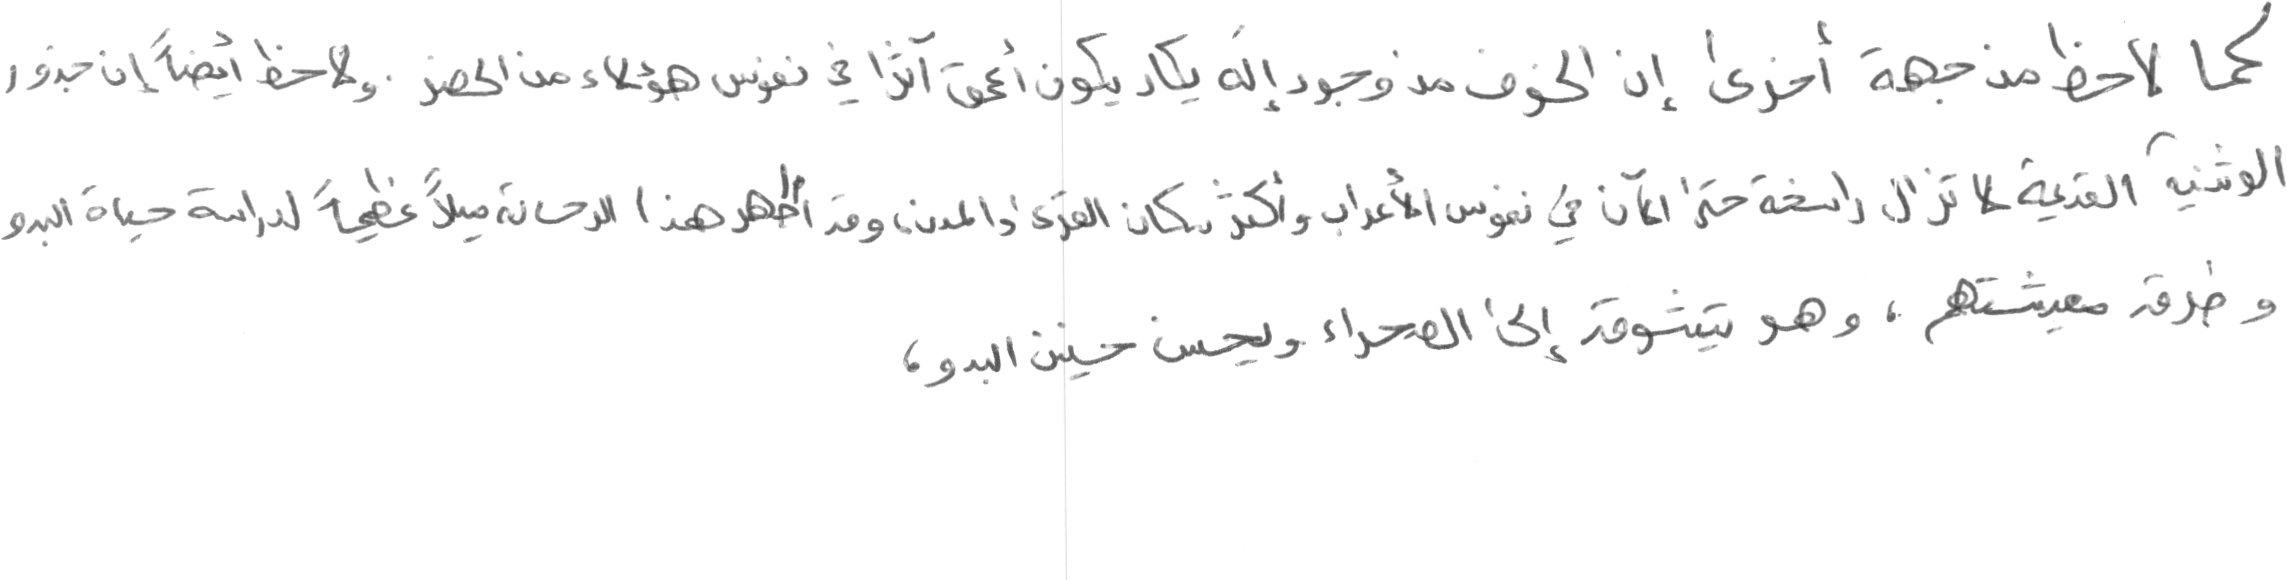 كما لاحظ من جهة أخرى إن الخوف من وجود إله يكاد يكون أعمق آثرا في نفوس هؤلاء من الحضر. ولاحظ أيضاً إن جذور
الوثنية القديمة لا تزال راسخة حتى الآن في نفوس الأعراب وأكثر سكان القرى والمدن، وقد أظهر هذا الرحالة ميلاً عظيماً لدراسة حياة البدو
وطرق معيشتهم، وهو يتشوق إلى الصحراء ويحسن حنين البدو،